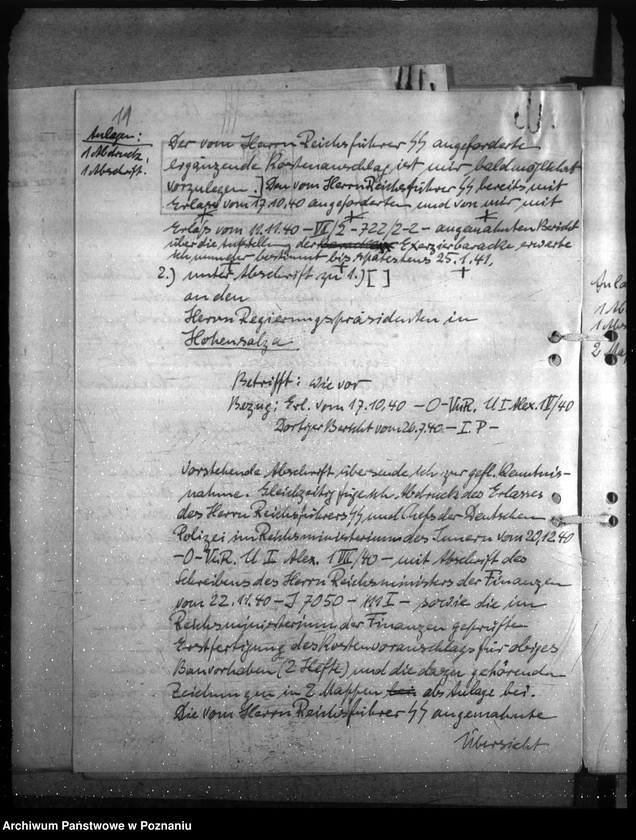 11
Anlagen:
1 Abdruck,
1 Abschrift.
Der vom Herrn Reichsführer SS angeforderte
ergänzende Kostenanschlag ist mir baldmöglichst
vorzulegen.] Den vom Herrn Reichsführer SS bereits mit
Erlass vom 17.10.40 angeforderten und von mir mit
Erlaß vom 11.11.40 - VI/2 - 722/2-2 - angemahnten Bericht
über die Aufstellung der Exerzierbaracke erwarte
ich nunmehr bestimmt bis spätestens 25.1.41.
2.) unter Abschrift zu 1.) [ ]
an den
Herrn Regierungspräsidenten in
Hohensalza
Betrifft: wie vor
Bezug: Erl. vom 17.10.40 - O-VuR. U I Alex. IV/40
Dortiger Bericht vom 26.7.40 - I.P -
Vorstehende Abschrift übersende ich zur gefl. Kenntnis-
nahme. Gleichzeitig füge ich Abdruck des Erlasses
des Herrn Reichsführers SS und Chefs der Deutschen
Polizei im Reichsministerium des Innern vom 20.12.40
- O-VuR. U I Alex. 1 VII/40 - mit Abschrift des
Schreibens des Herrn Reichsministers der Finanzen
vom 22.11.40 - J 7050 - - sowie die im
Reichsministerium der Finanzen geprüfte
Erstfertigung des Kostenvoranschlags für obiges
Bauvorhaben (2 Hefte) und die dazu gehörenden
Zeichnungen in 2 Mappen bei als Anlage bei.
Die vom Herrn Reichsführer SS angemahnte
Übersicht
Archiwum Państwowe w Poznaniu